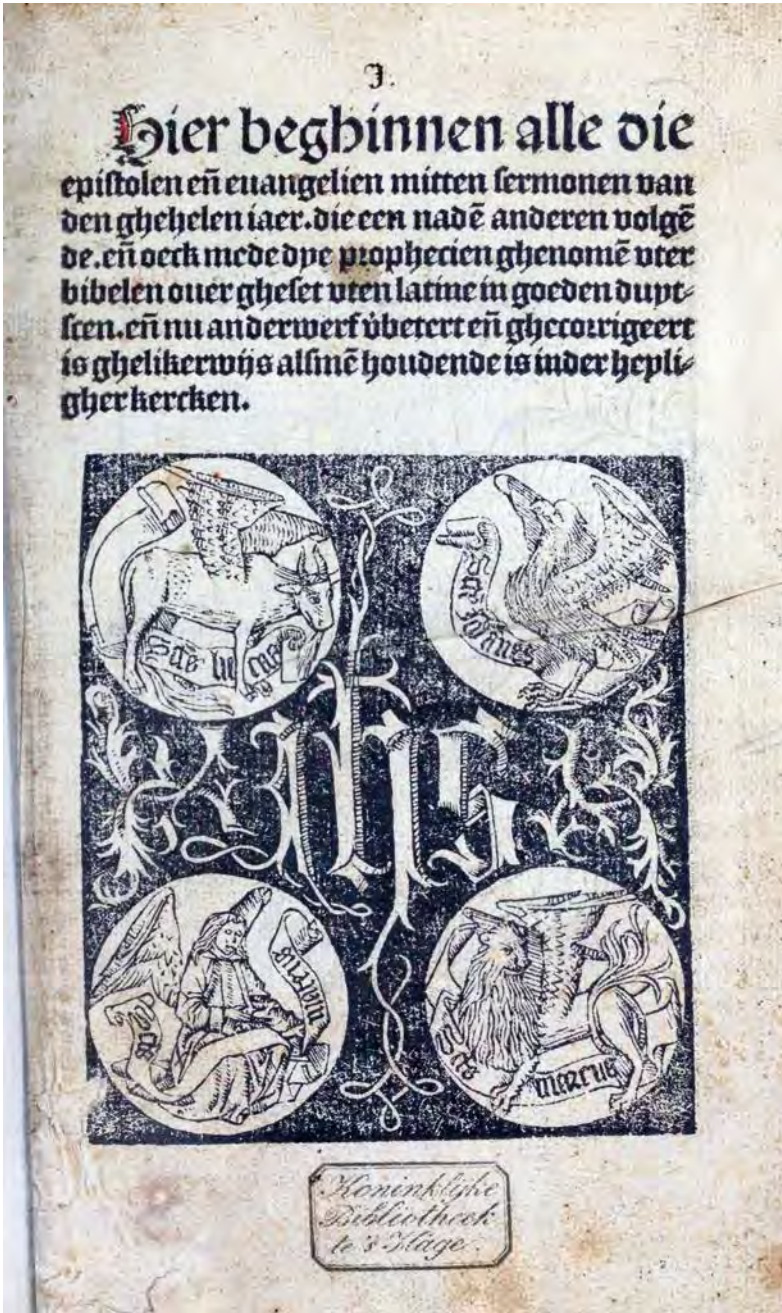 J.
Hier beghinnen alle die
epistolen eñ euangelien mitten sermonen van
den ghehelen iaer. die een nadē anderen volgē
de. eñ oeck mede dye prophecien ghenomē vter
bibelen ouer gheset vten latine in goeden duyt⸗
scen. eñ nu anderwerf v̄betert eñ ghecorrigeert
is ghelikerwijs alsmē houdende is inder heyli⸗
gher kercken.
Scūs lucas
Scūs iohānes
ihs
Scūs
mateus
Scūs
marcus
Koninklijke
Bibliotheek
te 's Hage.